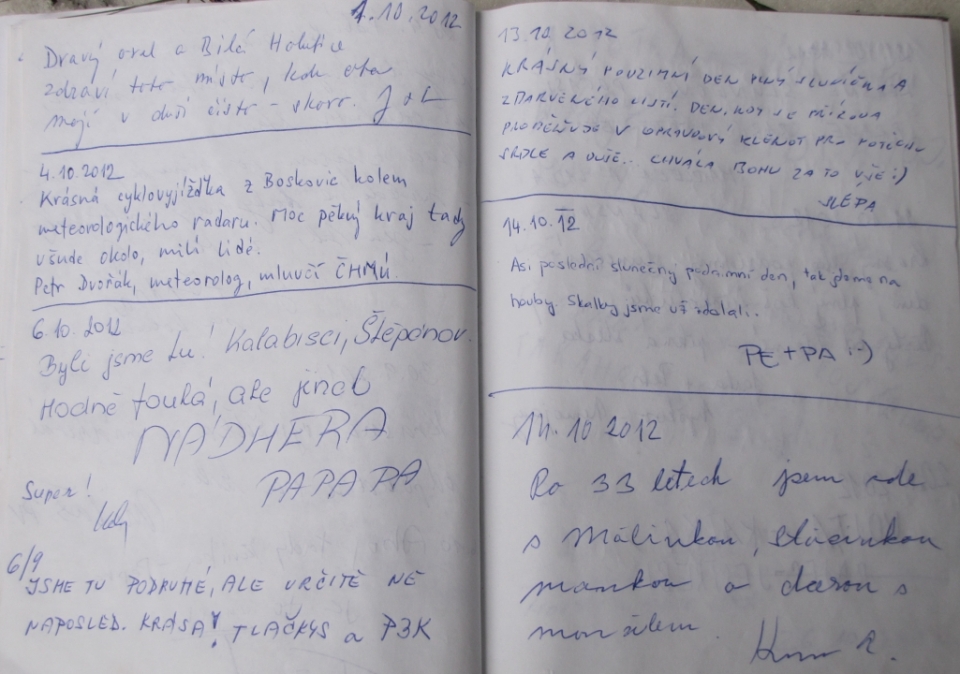 1.10.2012
Dravý orel a Bílá Holubice
zdraví toto místo, kdo oba
mají v duši čisto - skorr. J+L
4.10.2012
Krásná cyklovyjížďka z Boskovic kolem
meteorologického radaru. Moc pěkný kraj tady
všude okolo, milí lidé.
Petr Dvořák, meteorolog, mluvčí ČHMÚ
6.10.2012
Byli jsme tu! Kalábisci, Štěpánov.
Hodně fouká, ale jinak
NÁDHERA
PAPAPA
Super!
6/9
JSME TU PODRUHÉ, ALE URČITĚ NE
NAPOSLED. KRÁSA! TLAČKYS a P3K
13.10.2012
KRÁSNÝ PODZIMNÍ DEN PLNÝ SLUNÍČKA A
ZBARVENÉHO LISTÍ. DEN, KDY SE PŘÍRODA
PROMĚŇUJE V OPRAVDOVÝ KLENOT PRO POTĚCHU
SRDCE A DUŠE.. CHVÁLA BOHU ZA TO VŠE :)
SLÉPA
14.10.12
Asi poslední slunečný podzimní den, tak jdeme na
houby. Skalby jsme už zdolali.
PE + PA :-)
14.10 2012
Po 33 letech jsem zde
s Málinkou,
mamkou a dcerou s
manželem.